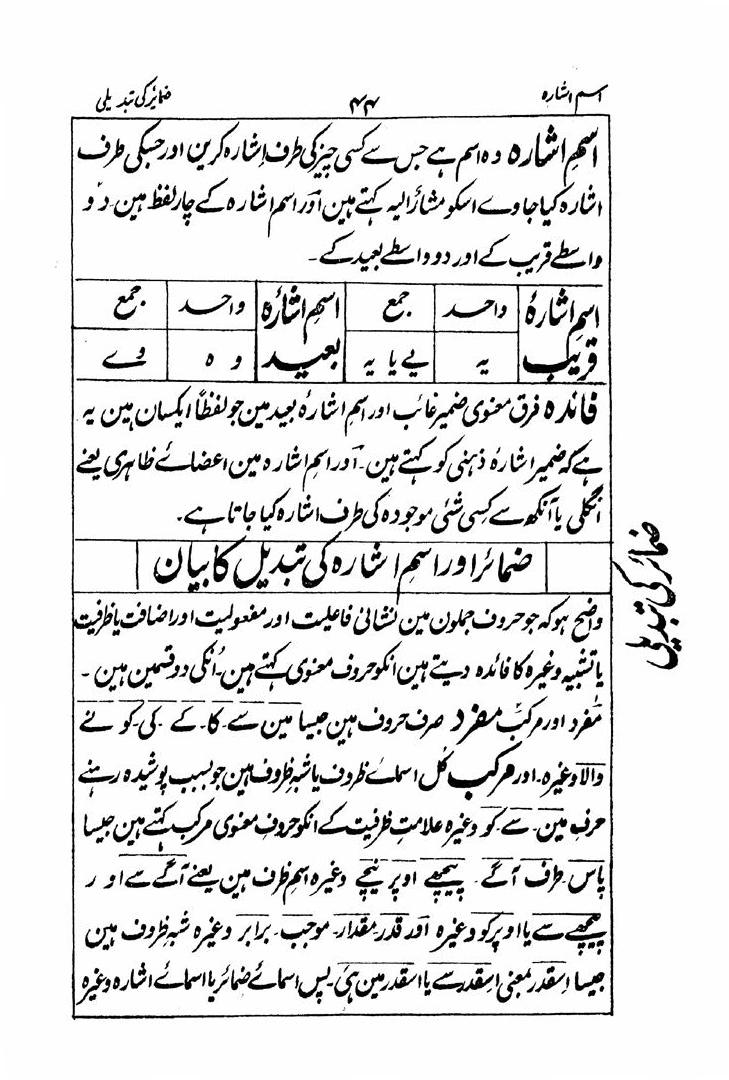 اسم اشارہ ۴۴ ضمائر کی تبدیلی
اسم اشارہ وہ اسم ہے جس سے کسی چیز کی طرف اِشارہ کرین اور جسکی طرف
اشارہ کیا جاوے اسکو مشارٌ الیہ کہتے ہین اَور اسم اشارہ کے چار لفظ ہین۔ دو
واسطے قریب کے اور دو واسطے بعید کے۔
اسم اشارۂ قریب واحد جمع اسم اشارۂ بعید واحد جمع
یہ یے یا یہ وہ وے
فائدہ فرق معنوی ضمیر غائب اور اسم اشارۂ بعید مین جو لفظاً ایکسان ہین یہ
ہے کہ ضمیر اشارۂ ذہنی کو کہتے ہین۔ اَور اسم اِشارہ مین اعضائے ظاہری یعنے
انگلی یا آنکھ سے کِسی شئی موجودہ کی طرف اشارہ کیا جاتا ہے۔
ضمائر اور اسمِ اشارہ کی تبدیل کا بیان
ضمائر کی تبدیلی
واضح ہو کہ جو حروف جملون مین نشانی فاعلیت اور مفعولیت اور اضافت یا ظرفیت
یا تشبیہ وغیرہ کا فائدہ دیتے ہین انکو حروف معنوی کہتے ہین۔ اُنکی دو قسمین ہین۔
مُفرد اور مرکب مفرد صرف حروف ہین جیسا مین سے۔ کا۔ کے۔ کی۔ کو نے
والا وغیرہ۔ اور مرکب کُل اسمائے ظروف یا شبہِ ظروف ہین جو بسبب پوشیدہ رہنے
حرفِ مین۔ سے۔ کو وغیرہ علامتِ ظرفیت کے انکو حروفِ معنوی مرکب کہتے ہین جیسا
پاس۔ طرف آگے۔ پیچھے اوپر نیچے وغیرہ اسمِ ظرف ہین یعنے آگے سے اور
پیچھے سے یا اوپر کو وغیرہ اَور قدر۔ مقدار۔ موجب۔ برابر وغیرہ شبہِ ظروف ہین
جیسا اِسقدر بمعنی اِسقدر سے یا اسقدر مین ہی۔ پس اسمائے ضمائر یا اسمائے اشارہ وغیرہ